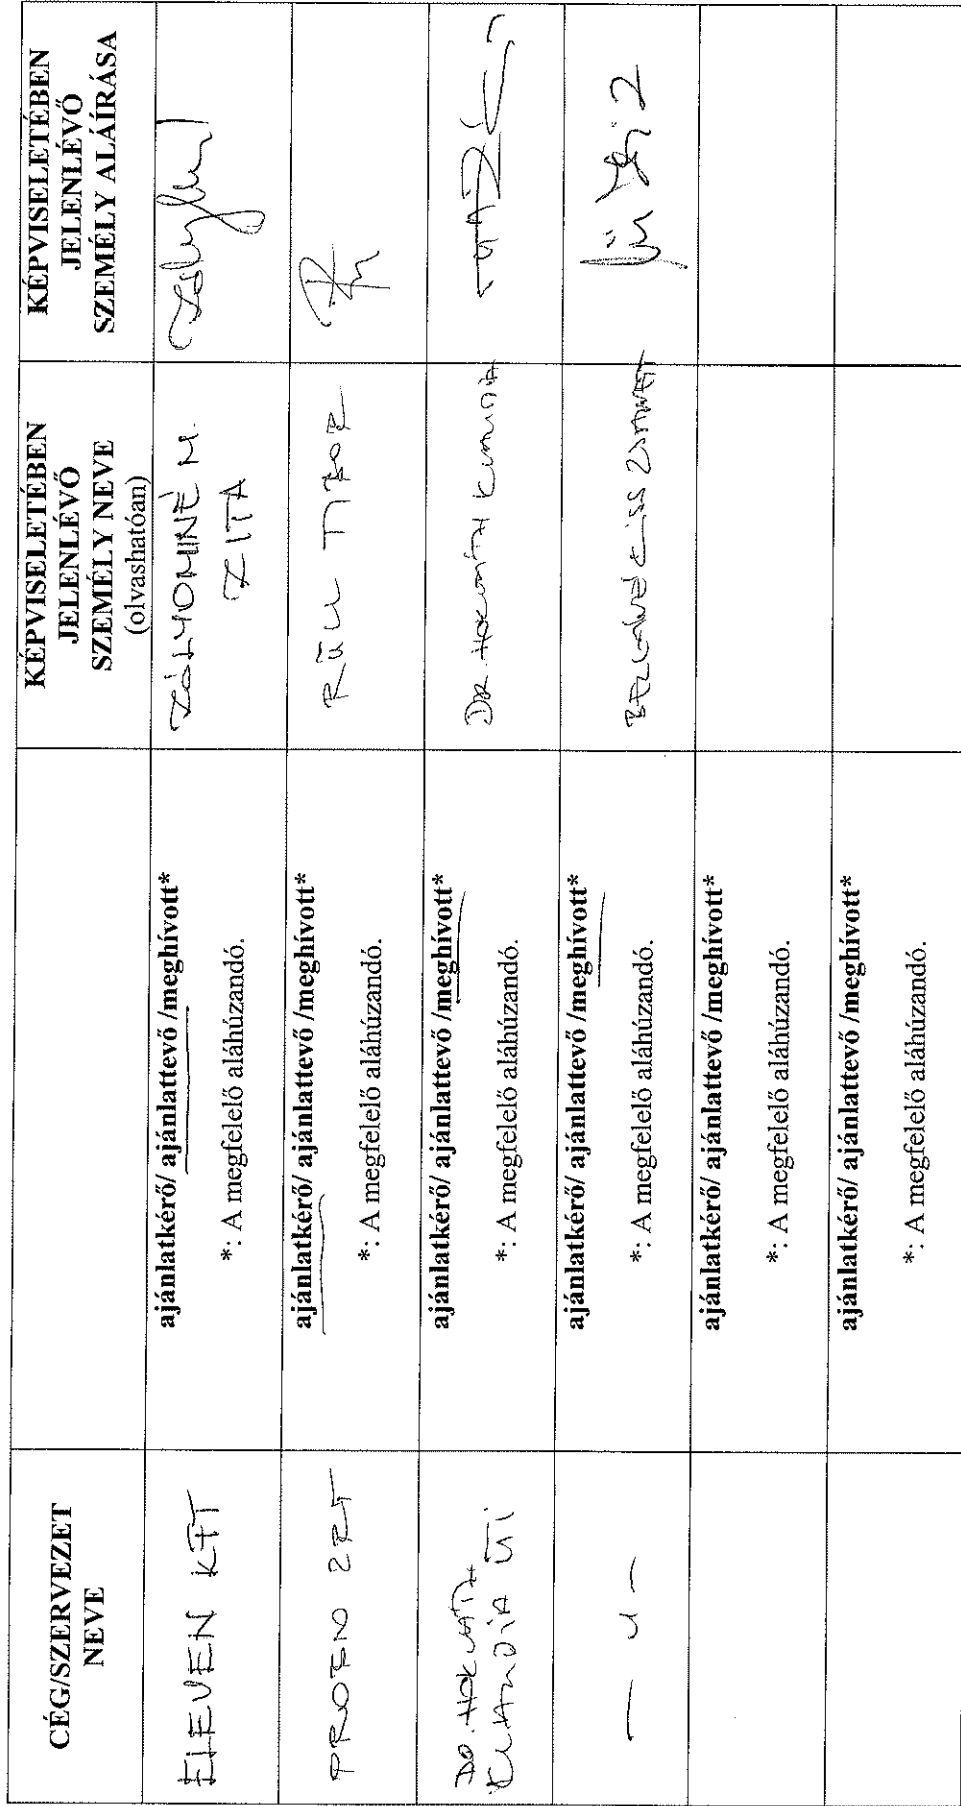 CÉG/SZERVEZET
NEVE
KÉPVISELETÉBEN
JELENLÉVŐ
SZEMÉLY NEVE
(olvashatóan)
KÉPVISELETÉBEN
JELENLÉVŐ
SZEMÉLY ALÁÍRÁSA
ELEVEN KFT
ajánlatkérő/ ajánlattevő /meghívott*
*: A megfelelő aláhúzandó.
ZÓLYOMINÉ M.
ZITA
ZRT
ajánlatkérő/ ajánlattevő /meghívott*
*: A megfelelő aláhúzandó.
RÜLL TIBOR
DR. HORVÁTH
KLAUDIA ÜI
ajánlatkérő/ ajánlattevő /meghívott*
*: A megfelelő aláhúzandó.
DR. HORVÁTH KLAUDIA
— 〃 —
ajánlatkérő/ ajánlattevő /meghívott*
*: A megfelelő aláhúzandó.
ZSANETT
ajánlatkérő/ ajánlattevő /meghívott*
*: A megfelelő aláhúzandó.
ajánlatkérő/ ajánlattevő /meghívott*
*: A megfelelő aláhúzandó.